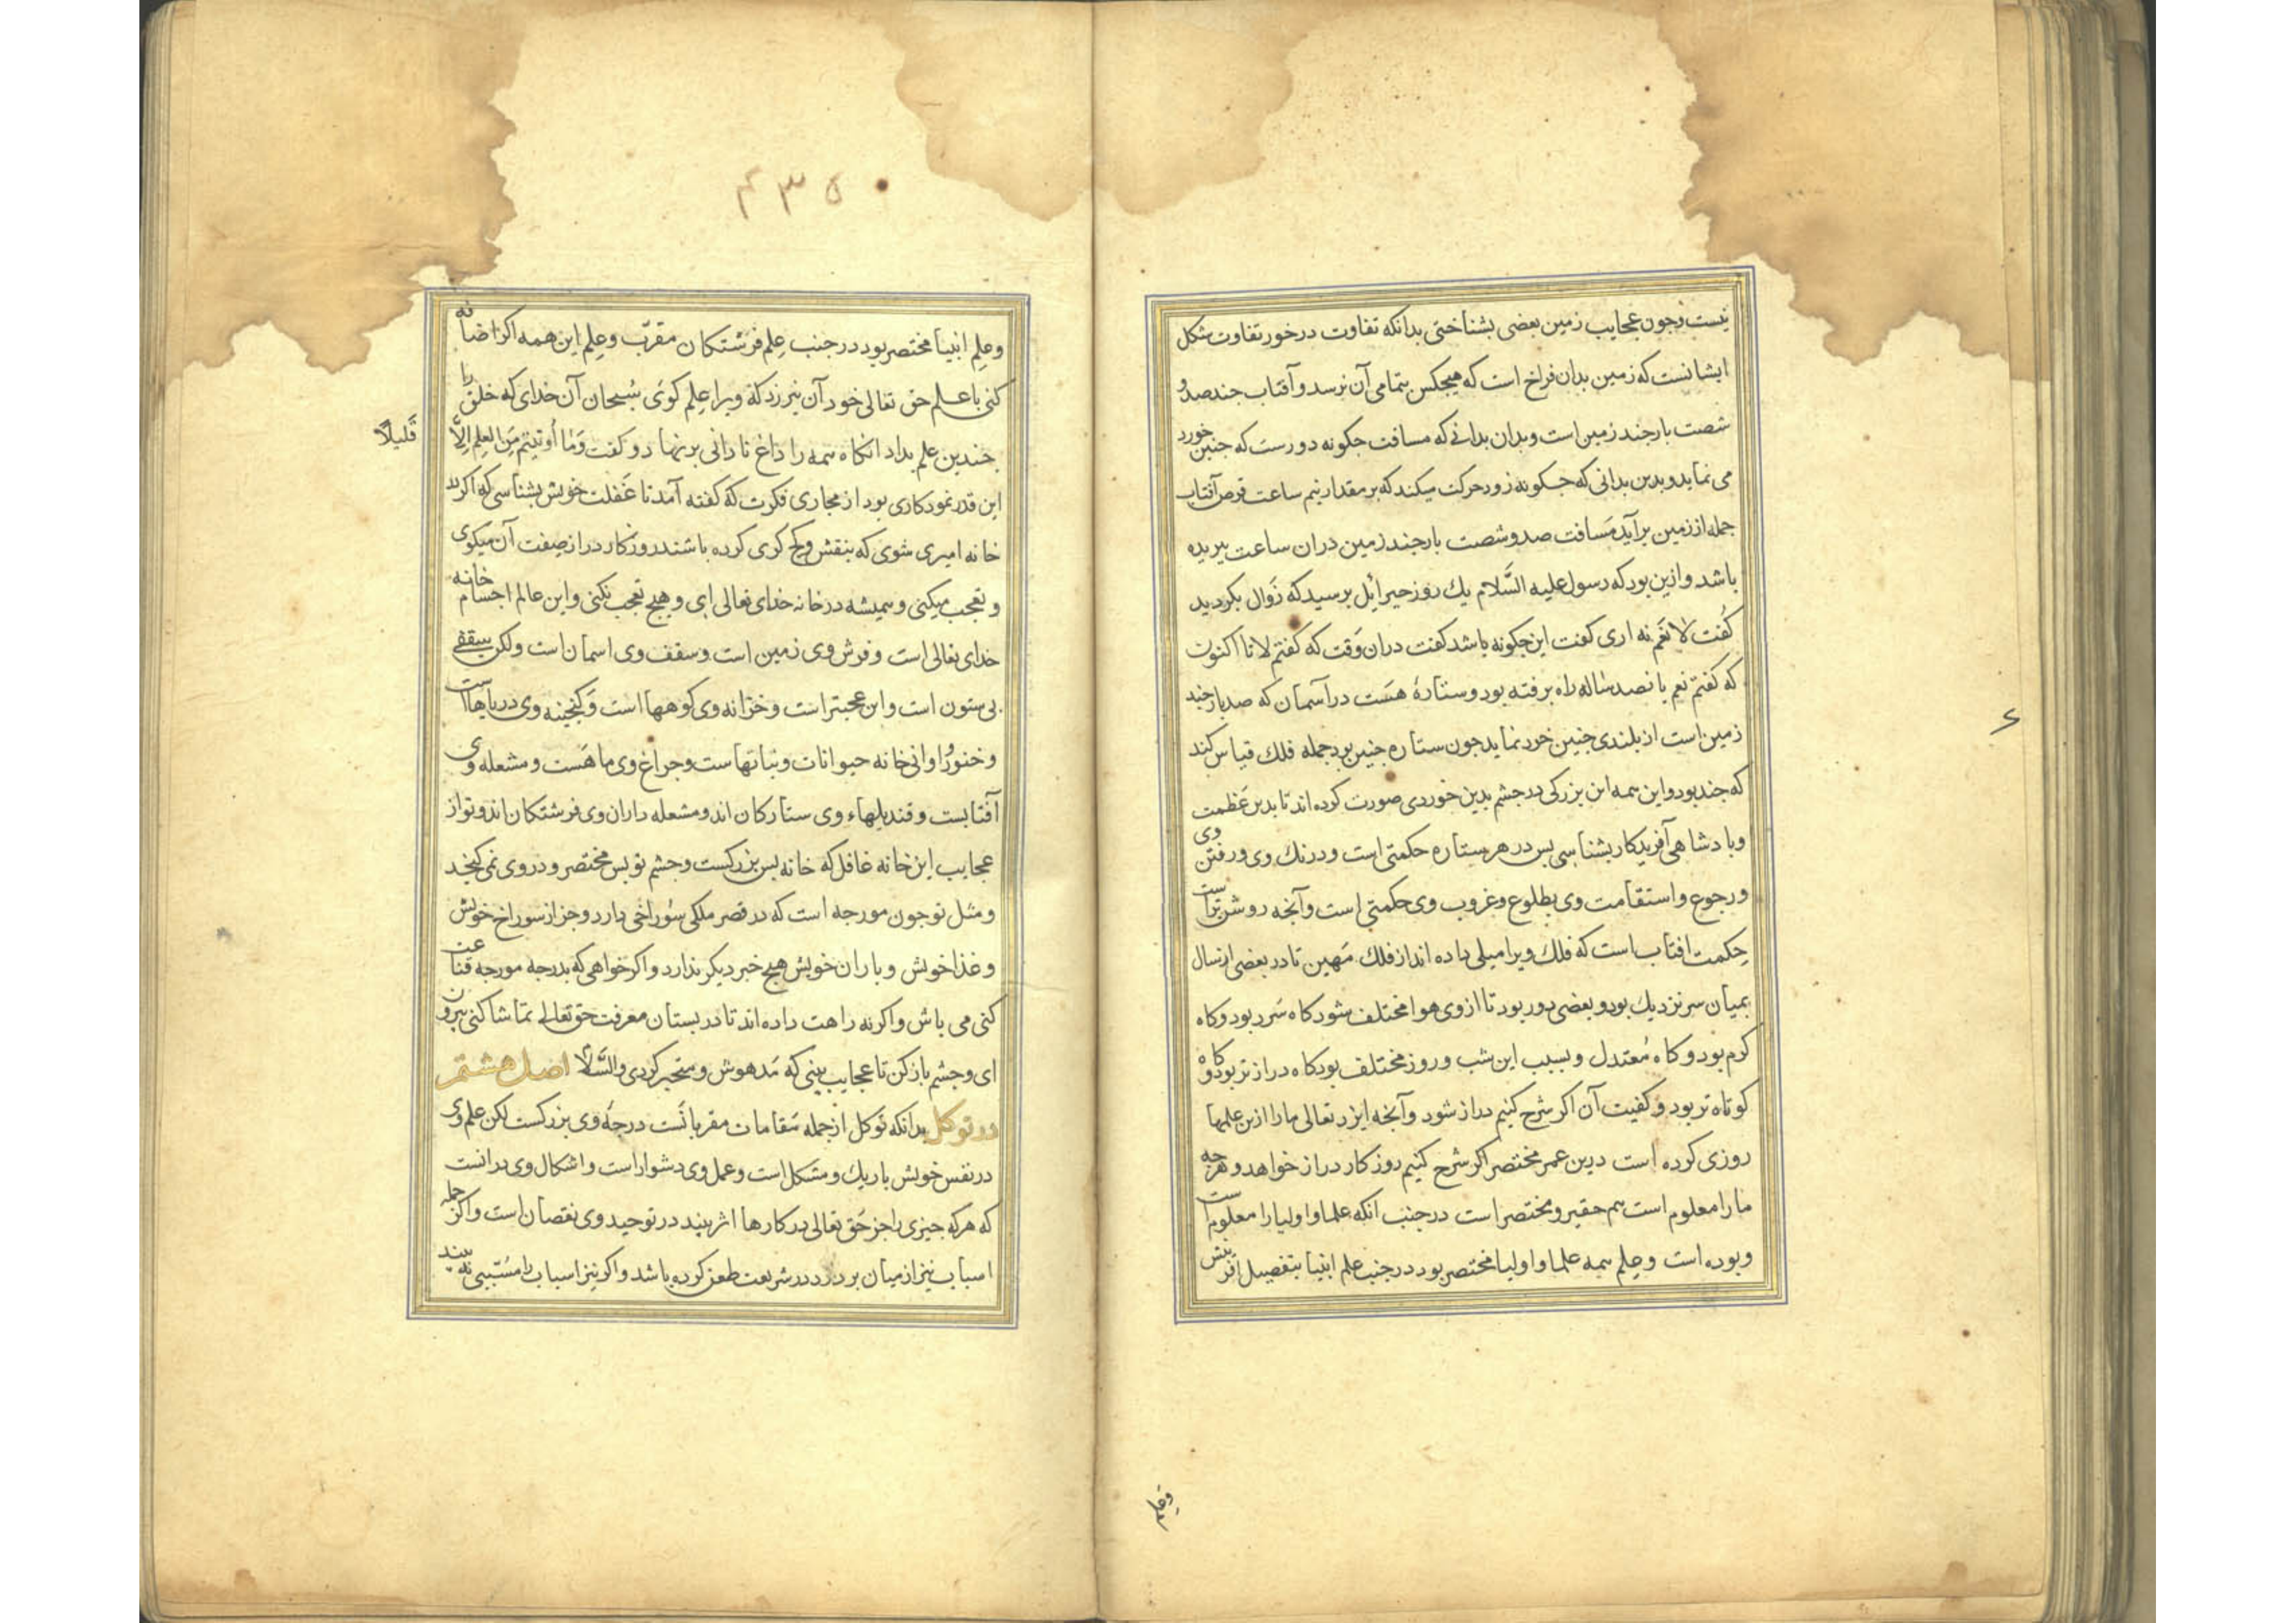 نیست وچون عجایب زمین بعضی بشناختی بدانکه تفاوت درخور تفاوت شکل
ایشانست که زمین بدان فراخ است که هیجکس بتمامی آن نرسد و آفتاب جند صد و
شصت بار جند زمین است وبدان بدانی که مسافت جکونه دورست که جنین خورد
می نماید وبدین بدانی که جکونه زود حرکت میکند که بر مقدار نیم ساعت قرص آفتاب
جمله از زمین برآید مسافت صد و شصت بار جند زمین دران ساعت ببریده
باشد وازین بود که رسول علیه السَّلام یك روز جبرائیل برسید که زوال بکردید
کفت لا نعم نه اری کفت این جکونه باشد کفت دران وقت که کفتم لا تا اکنون
که کفتم نعم بانصد ساله راه برفته بود وستارهٔ هست درآسمان که صد بار جند
زمین است از بلندی جنین خرد نماید جون ستاره جنین بود جمله فلك قیاس کند
که جند بود واین همه این بزرکی درجشم بدین خوردی صورت کرده اند تا بدین عظمت
وبادشاهی آفریدکار بشناسی بس در هر ستاره حکمتی است ودر رنك وی ورفتن وی
ورجوع واستقامت وی بطلوع وغروب وی حکمتی است وآنجه روشن تراست
حکمت افتاب است که فلك ویرا میلی داده اند از فلك مهین تا در بعضی از سال
بمیان سر نزدیك بود وبعضی دور بود تا از وی هوا مختلف شود کاه سرد بود وکاه
کرم بود وکاه معتدل وبسبب این شب وروز مختلف بود کاه دراز تر بود وکاه
کوتاه تر بود وکفیت آن اکر شرح کنیم دراز شود وآنجه ایزد تعالی ما را ازین علمها
روزی کرده است درین عمر مختصر اکر شرح کنیم روزکار دراز خواهد وهرجه
ما را معلوم است هم حقیر ومختصر است درجنب انکه علما واولیا را معلوم است
وبوده است وعلم همه علما واولیا مختصر بود درجنب علم انبیا بتفصیل آفرینش
۶
۴۳۵
وعلم انبیا مختصر بود درجنب علم فرشتکان مقرّب وعلم این همه اکر اضافه
کنی با علم حق تعالی خود آن نیرزد که ویرا علم کوی سبحان آن خدای که خلق را
جندین علم بداد انکاه همه را داغ نادانی برنهاد وکفت وَمَا أُوتِیتُم مِنَ العِلمِ اِلَّا
قَلیلاً
این قدر نمودکاری بود از مجاری فکرت که کفته آمد تا غفلت خویش بشناسی که اکر در
خانه امیری شوی که بنقش وکج کری کرده باشند روزکار دراز صفت آن میکوی
وتعجب میکنی وهمیشه درخانه خدای تعالی ای وهیج تعجب نکنی واین عالم اجسام خانه
خدای تعالی است وفرش وی زمین است وسقف وی اسمان است ولکن سقفی
بی ستون است واین عجبتر است وخزانه وی کوهها است وکنجینه وی دریاها است
وخنور واوانی خانه حیوانات ونباتهاست وجراغ وی ماهست ومشعله وی
آفتابست وقندیلهاء وی ستارکان اند ومشعله داران وی فرشتکان اند وتو از
عجایب این خانه غافل که خانه بس بزرکست وجشم تو بس مختصر ودر وی نمی کنجد
ومثل تو جون مورجه است که در قصر ملکی سوراخی دارد وجز از سوراخ خویش
وغذا خویش ویاران خویش هیج خبر دیکر ندارد واکر خواهی که بدرجه مورجه قناعت
کنی می باش واکر نه راهت داده اند تا در بستان معرفت حق تعالی تماشا کنی بیرون
ای وجشم باز کن تا عجایب بینی که مدهوش ومتحیر کردی والسَّلام اصل هشتم
در توکل بدانکه توکل از جمله مقامات مقربانست درجه وی بزرکست لکن علم وی
در نفس خویش باریك ومشکل است وعمل وی دشوار است واشکال وی درانست
که هرکه جیزی را جز حق تعالی در کارها اثر بیند در توحید وی نقصان است واکر جمله
اسباب نیز از میان بردارد در شریعت طعن کرده باشد واکر نیز اسباب را مسببی نه بیند